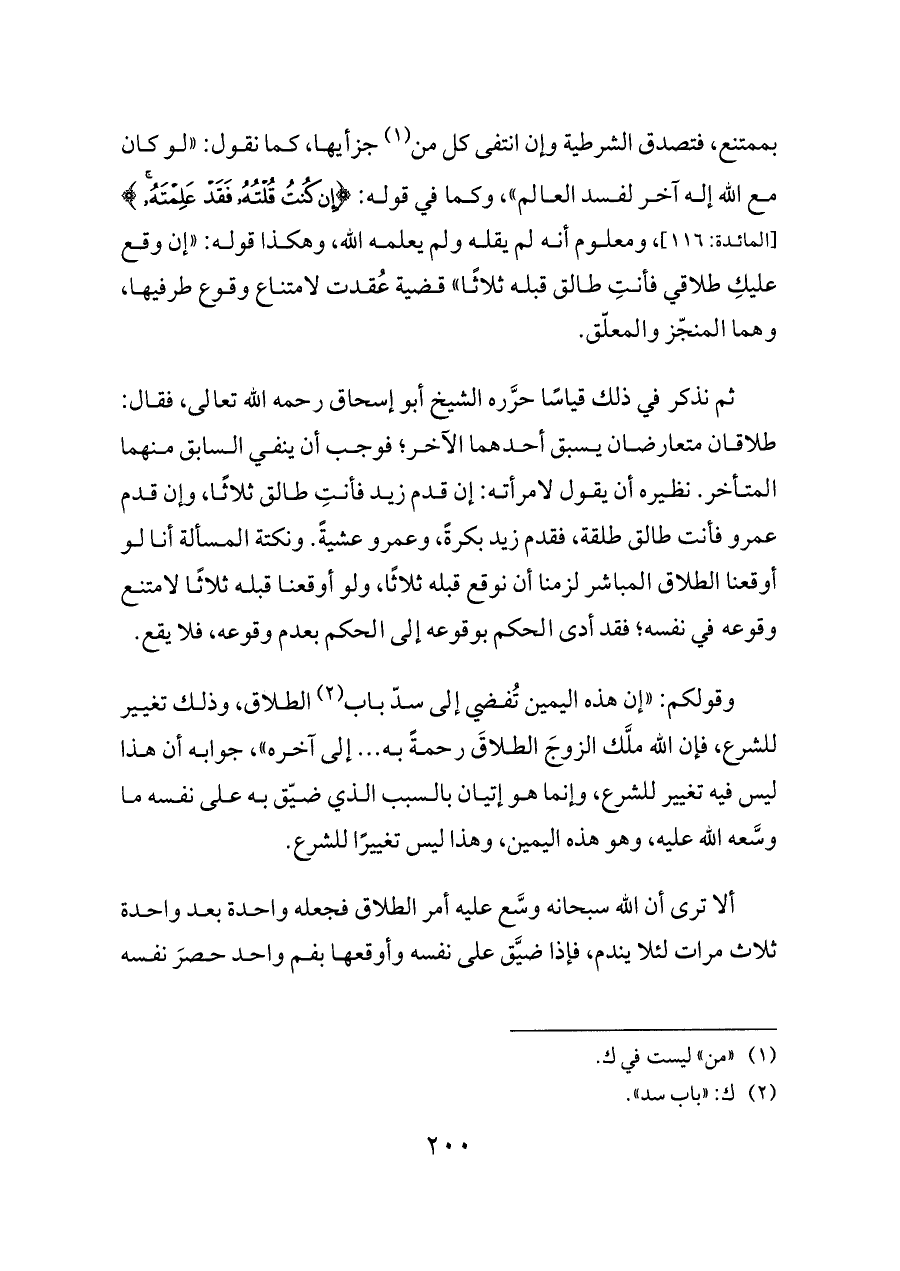 بممتنع، فتصدق الشرطية وإن انتفى كل من(١) جزأيها، كما نقول: «لو كان
مع الله إله آخر لفسد العالم»، وكما في قوله: ﴿إِن كُنتُ قُلْتُهُۥ فَقَدْ عَلِمْتَهُۥۚ﴾
[المائدة: ١١٦]، ومعلوم أنه لم يقله ولم يعلمه الله، وهكذا قوله: «إن وقع
عليكِ طلاقي فأنتِ طالق قبله ثلاثًا» قضية عُقدت لامتناع وقوع طرفيها،
وهما المنجّز والمعلّق.
ثم نذكر في ذلك قياسًا حرَّره الشيخ أبو إسحاق رحمه الله تعالى، فقال:
طلاقان متعارضان يسبق أحدهما الآخر؛ فوجب أن ينفي السابق منهما
المتأخر. نظيره أن يقول لامرأته: إن قدم زيد فأنتِ طالق ثلاثًا، وإن قدم
عمرو فأنت طالق طلقة، فقدم زيد بكرةً، وعمرو عشيةً. ونكتة المسألة أنا لو
أوقعنا الطلاق المباشر لزمنا أن نوقع قبله ثلاثًا، ولو أوقعنا قبله ثلاثًا لامتنع
وقوعه في نفسه؛ فقد أدى الحكم بوقوعه إلى الحكم بعدم وقوعه، فلا يقع.
وقولكم: «إن هذه اليمين تُفضي إلى سدّ باب(٢) الطلاق، وذلك تغيير
للشرع، فإن الله ملَّك الزوجَ الطلاقَ رحمةً به... إلى آخره»، جوابه أن هذا
ليس فيه تغيير للشرع، وإنما هو إتيان بالسبب الذي ضيّق به على نفسه ما
وسَّعه الله عليه، وهو هذه اليمين، وهذا ليس تغييرًا للشرع.
ألا ترى أن الله سبحانه وسَّع عليه أمر الطلاق فجعله واحدة بعد واحدة
ثلاث مرات لئلا يندم، فإذا ضيَّق على نفسه وأوقعها بفم واحد حصرَ نفسه
(١) «من» ليست في ك.
(٢) ك: «باب سد».
٢٠٠